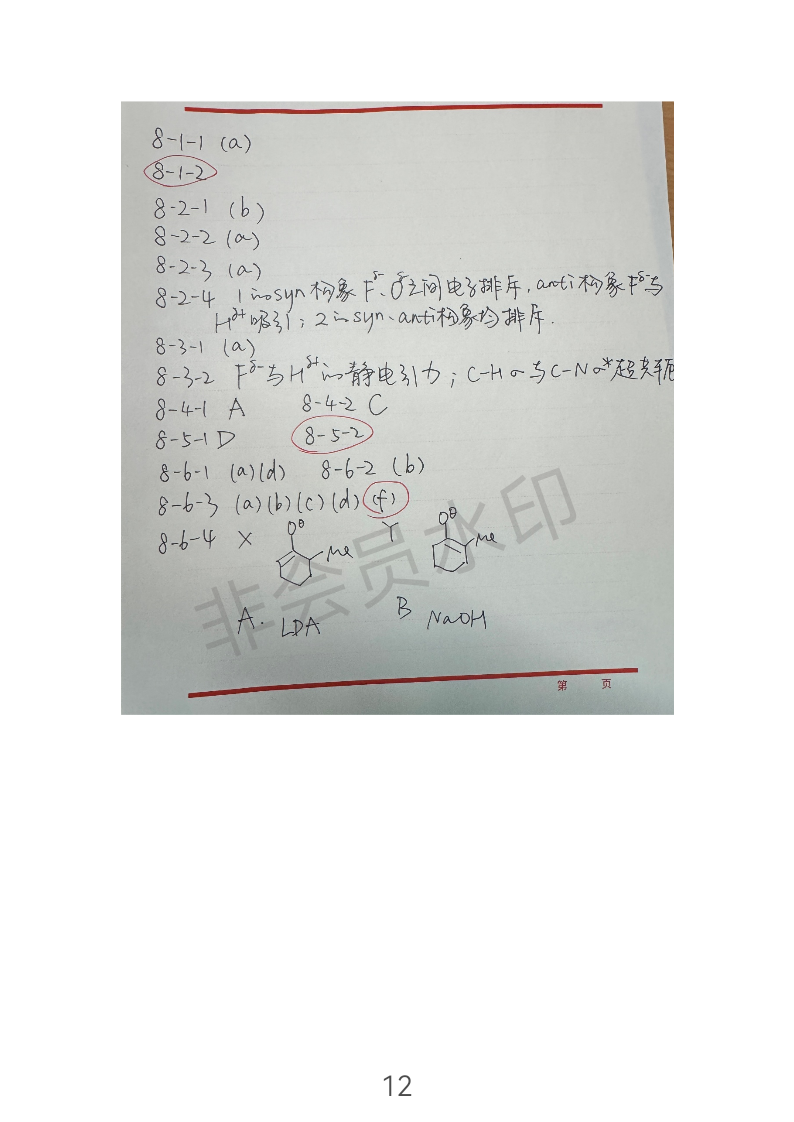 8-1-1 (a)
8-1-2
8-2-1 (b)
8-2-2 (a)
8-2-3 (a)
8-2-4 1的syn构象 Fδ-、Oδ-之间电子排斥，anti构象Fδ-与
Hδ+吸引；2的syn、anti构象均排斥.
8-3-1 (a)
8-3-2 Fδ-与Hδ+的静电引力；C-H σ与C-N σ*超共轭
8-4-1 A 8-4-2 C
8-5-1 D 8-5-2
8-6-1 (a)(d) 8-6-2 (b)
8-6-3 (a)(b)(c)(d)(f)
8-6-4 X O⊖ Me Y O⊖ Me
A. LDA B NaOH
非会员水印
第 页
12